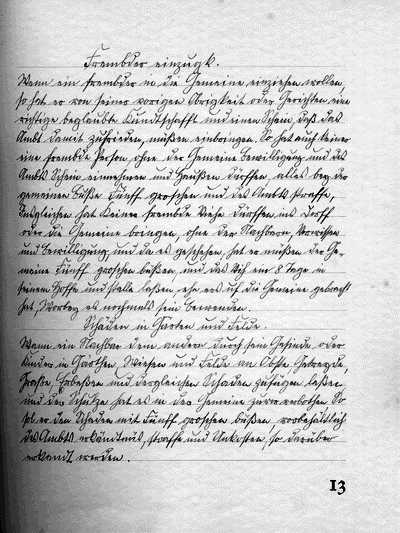 Frembder einzugk.
Wenn ein frembder in die Gemeine einziehen wollen,
so hat er von seiner vorigen Obrigkeit oder Gerichten eine
richtige beglaubte Kundtschafft und einen Schein, daß das
Ambt damit zufrieden, müßen einbringen. So hat auch keiner
eine frembde Person, ohne der Gemeine bewilligung und des
Ambts Schein einnehmen und haußen dürffen, alles bey der
gemeinen buße Fünff groschen und des Ambts straffe,
Ingleichen hat Keiner frembde Viehe dürffen ins Dorff
oder die Gemeine bringen, ohne der Nachbarn, Vorwißen
und bewilligung, und da es geschehen, hat er müßen der Ge-
meine Fünff groschen büßen, und das Vieh ein 8 Tage in
seinem Hoffe und stalle laßen ehe ers uf die Gemeine gebracht
hat, Worbey es nochmals sein bewenden.
Schäden in Garten und Felde.
Wann ein Nachbar dem andern durch sein Gesinde oder
Kinder in Garthen, Wiesen und Felde an Obste, Getreyde,
Graße, Erbeßen und dergleichen Schaden zufügen laßen
und der Schulze hat es in der Gemeine zuvor verbothen So
sol er den Schaden mit Fünff groschen büßen vorbehältlich
des Ambts erkändtnüs, straffe und Unkosten, so darüber
erkandt werden.
13